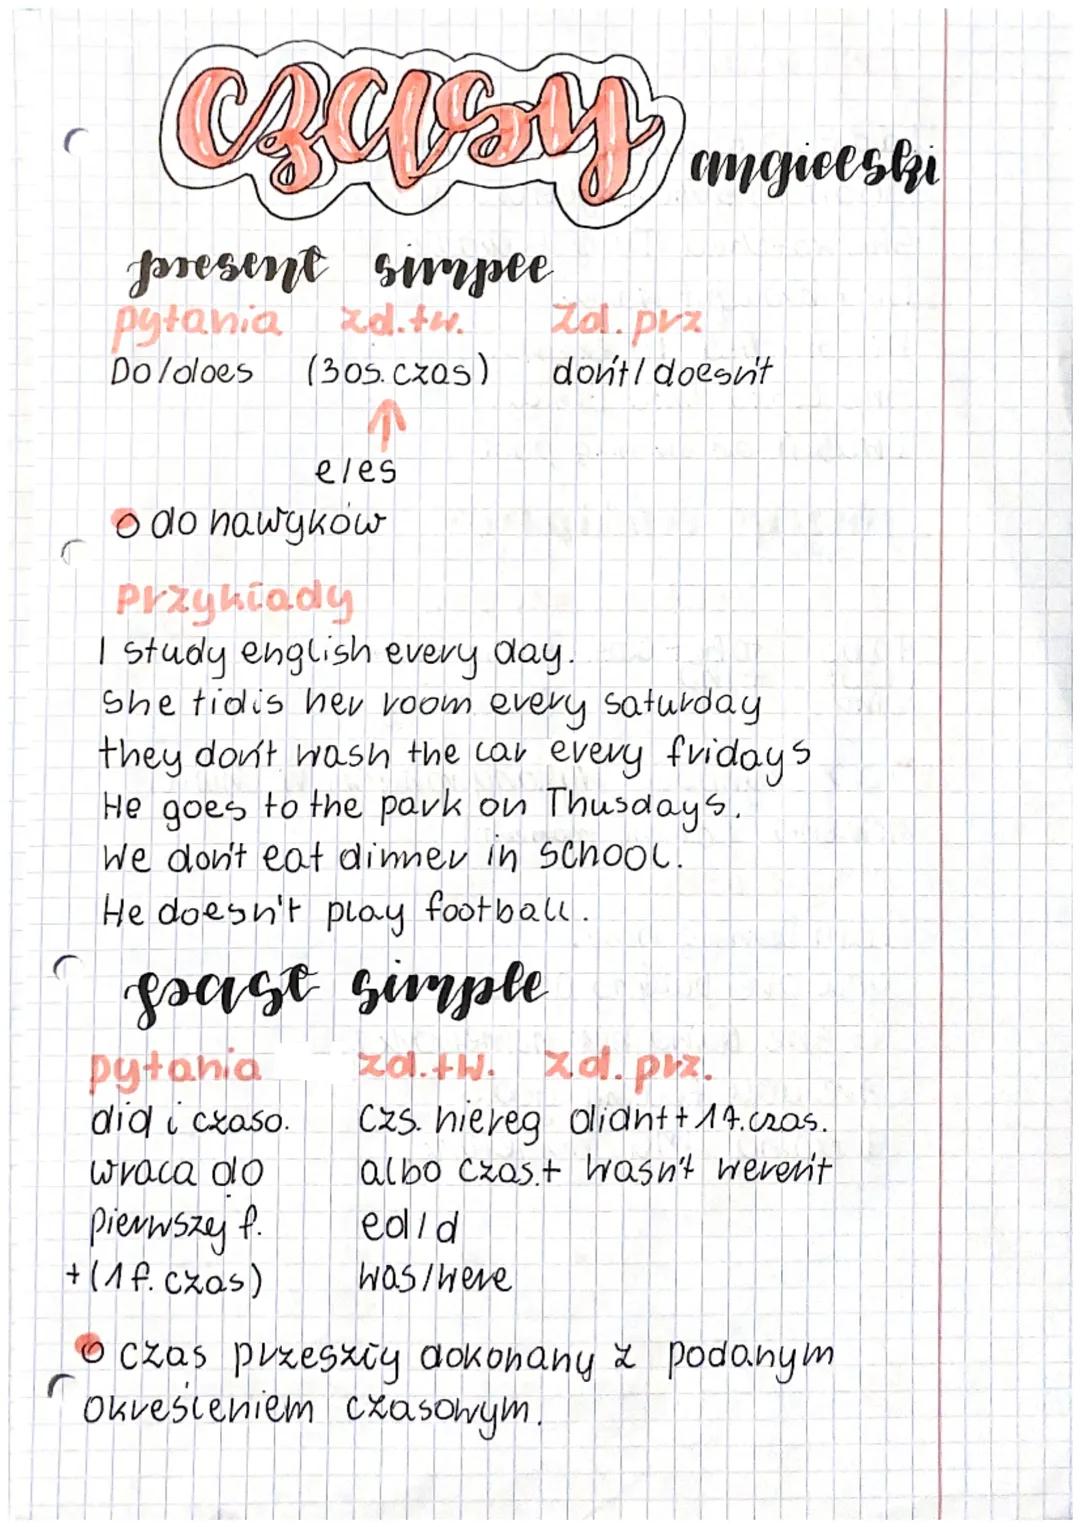 czasy angielski
present simple
pytania zd.tw. Zd.prz
Do/does (3os.czas) don't/doesn't
e/es
do nawyków
Przykłady
I study english every day.
She tidis her room every saturday
they don't wash the car every fridays
He goes to the park on Thusdays.
We don't eat dinner in school.
He doesn't play football.
past simple
pytania zd.tw. zd.prz.
did i czaso. Czs. niereg didnt+1f.czas.
wraca do albo czas.+ wasn't weren't
pierwszej f. ed/d
+(1f.czas) was/were
czas przeszły dokonany z podanym
określeniem czasowym.